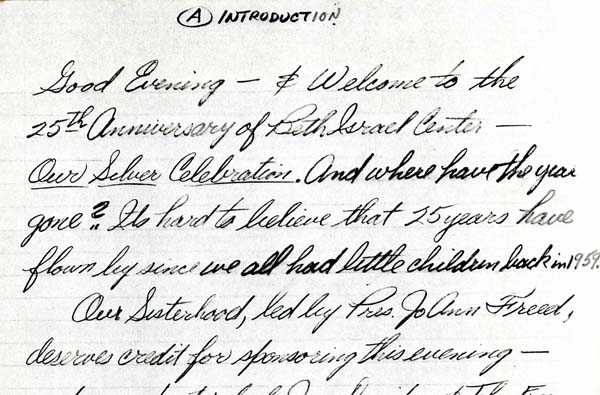 Ⓐ INTRODUCTION
Good Evening — & Welcome to the
25th Anniversary of Beth Israel Center —
Our Silver Celebration. And where have the year
gone? Its hard to believe that 25 years have
flown by since we all had little children back in 1959.
Our Sisterhood, led by Pres. JoAnn Freed,
deserves credit for sponsoring this evening —